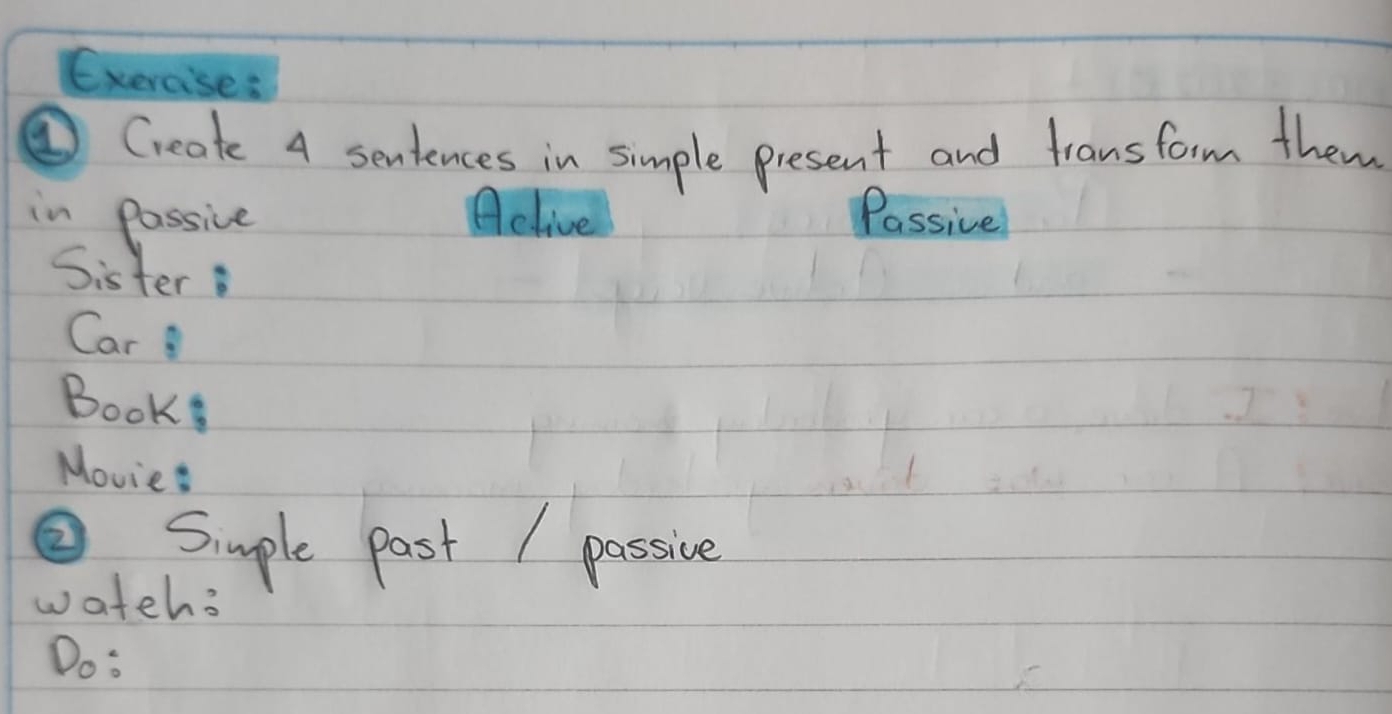 Exercise:
① Create 4 sentences in simple present and transform them
in passive Active Passive
Sister:
Car:
Book:
Movie:
② Simple past / passive
watch:
Do: